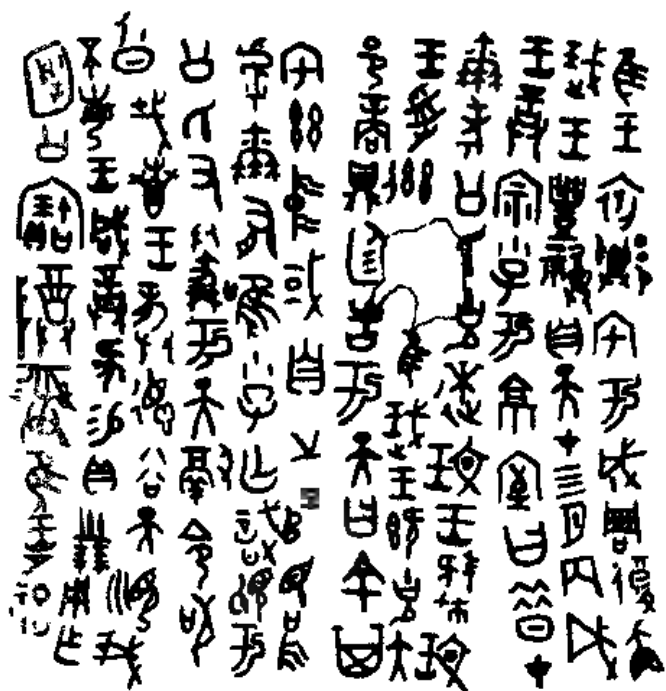 隹王初𨟻宅于成周復爯
珷王豐祼自天才四月丙戌
王誥宗小子于京室曰昔才
爾考公氏克逨玟王肆玟
王受茲隹珷王既克大
邑商則廷告于天曰余其
宅茲中或自之乂民烏
虖爾有唯小子亡識視于
公氏有爵于天徹令苟
享哉叀王恭德谷天順我
不每王咸誥何易貝卅朋用乍
公寶尊彝隹王五祀